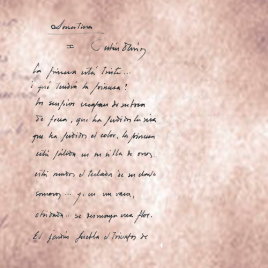 Sonatina
I
La princesa está triste...
¿qué tendrá la princesa?
Los suspiros se escapan de su boca
de fresa, que ha perdido la risa
que ha perdido el color, la princesa
está pálida en su silla de oro,
está mudo el teclado de su clave
sonoro... y en un vaso,
olvidada... se desmaya una flor.
El jardín puebla el triunfo de